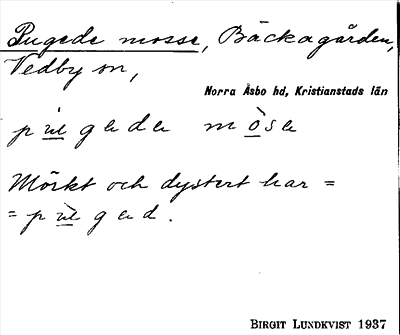 Pugede mosse, Bäckagården,
Vedby sn,
Norra Åsbo hd, Kristianstads län
Mörkt och dystert har =
BIRGIT LUNDKVIST 1937